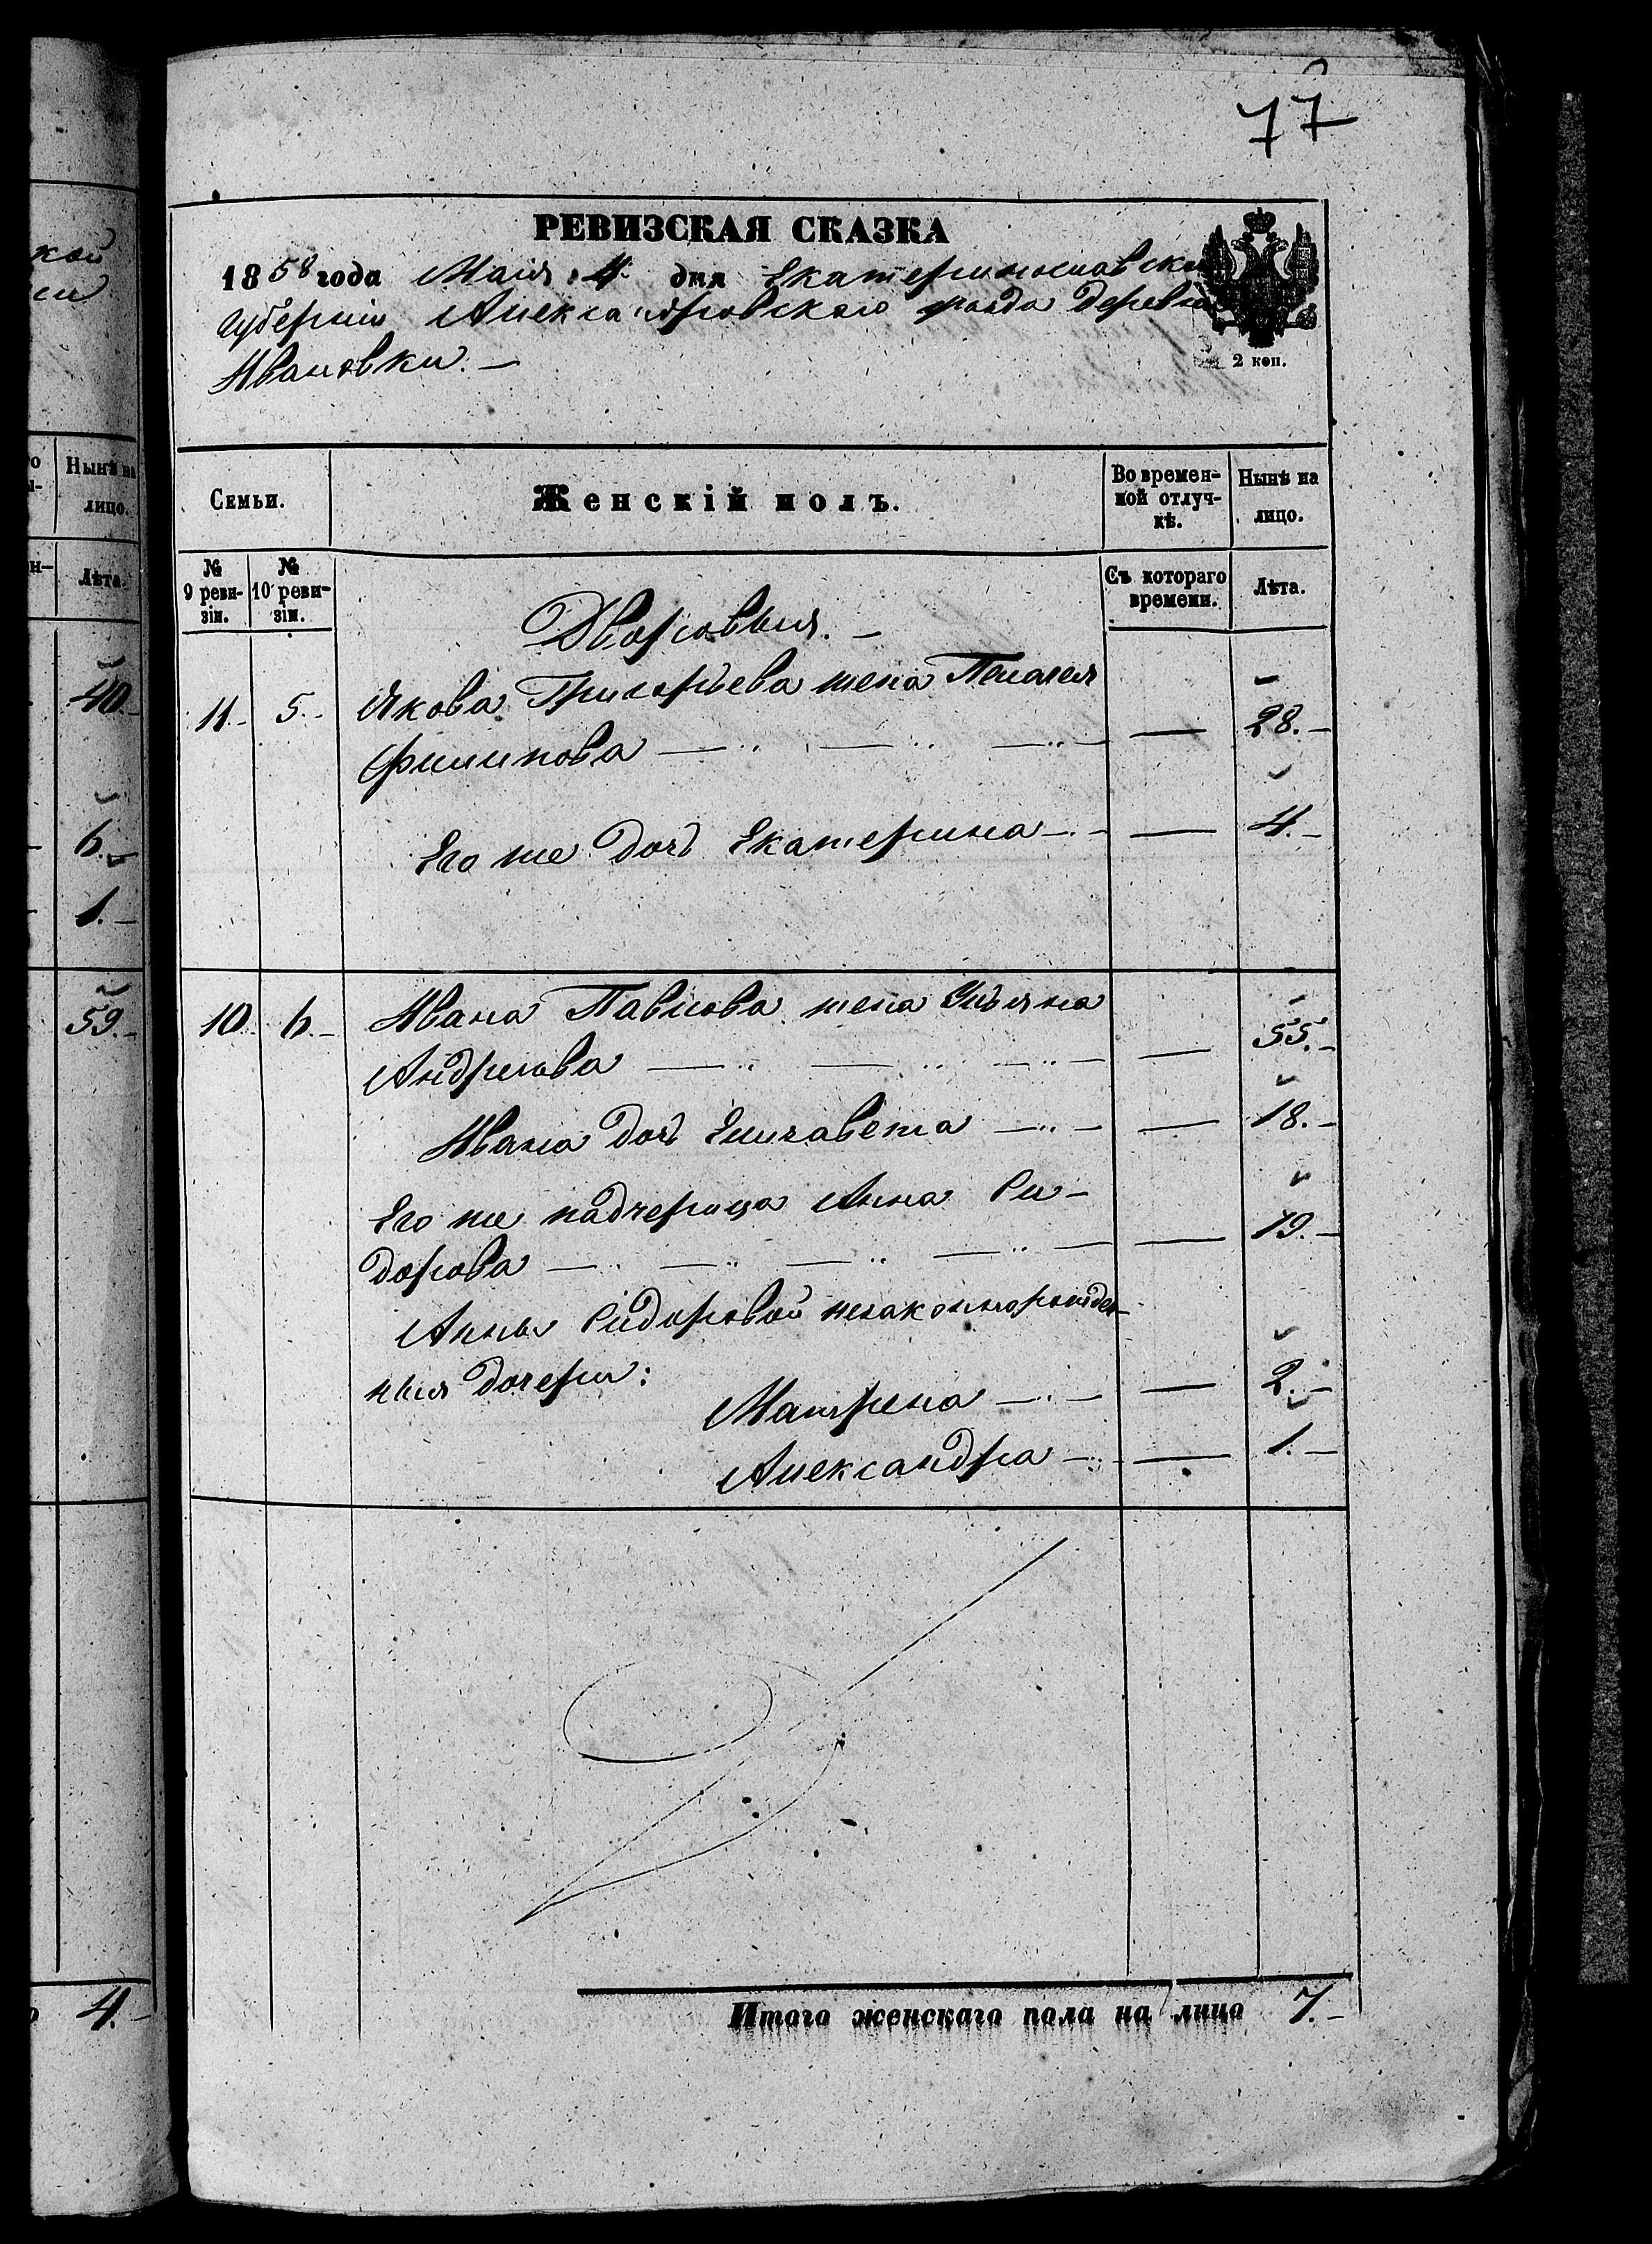 77
РЕВИЗСКАЯ СКАЗКА
1858 года Маія 4 дня Екатеринославской
Губерніи Александровскаго уѣзда деревни
Ивановки. —
2 коп.
кой
Семьи.
Женскій полъ.
Во времен-
ной отлуч-
кѣ.
Нынѣ на
лицо.
№
9 реви-
зіи.
№
10 реви-
зіи.
Съ котораго
времени.
Лѣта.
Дворовыя. —
11. 5. Якова Григорьева жена Пелагея
Филипова — 28. —
Его же дочь Екатерина — 4. —
10. 6. Ивана Павлова жена Ульяна
Андреева — 55. —
Ивана дочь Елизавета — 18. —
Его же падчерица Анна Си-
дорова — 19. —
Анны Сидоровой незаконнорожден-
ныя дочери:
Матрена — 2. —
Александра — 1. —
Итого женскаго пола на лицо 7. —
Нынѣ на
лицо.
Лѣта.
40.
6.
1. —
59. —
4. —